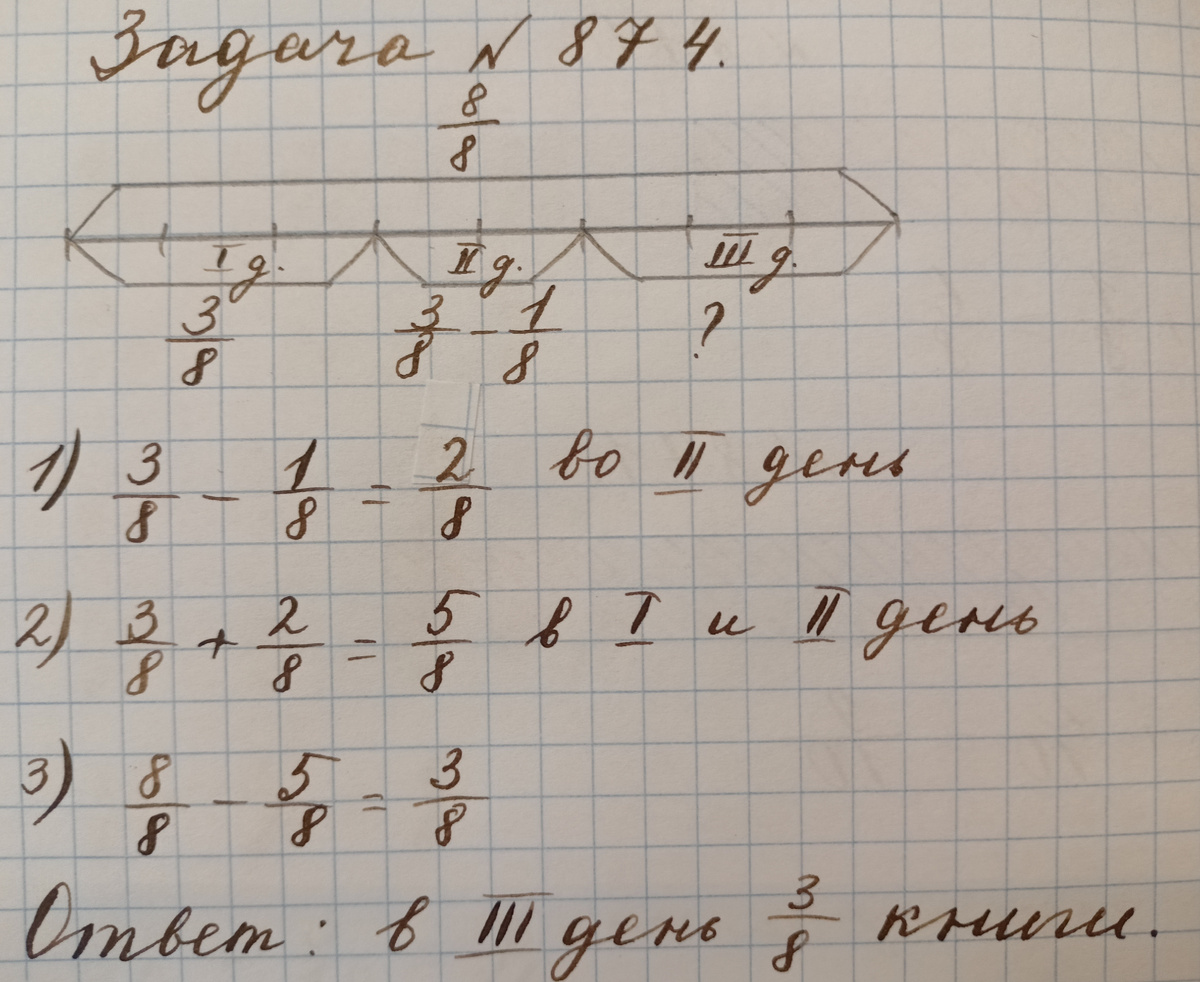 Задача № 874.
8/8
I д. II д. III д.
3/8 3/8 - 1/8 ?
1) 3/8 - 1/8 = 2/8 во II день
2) 3/8 + 2/8 = 5/8 в I и II день
3) 8/8 - 5/8 = 3/8
Ответ: в III день 3/8 книги.